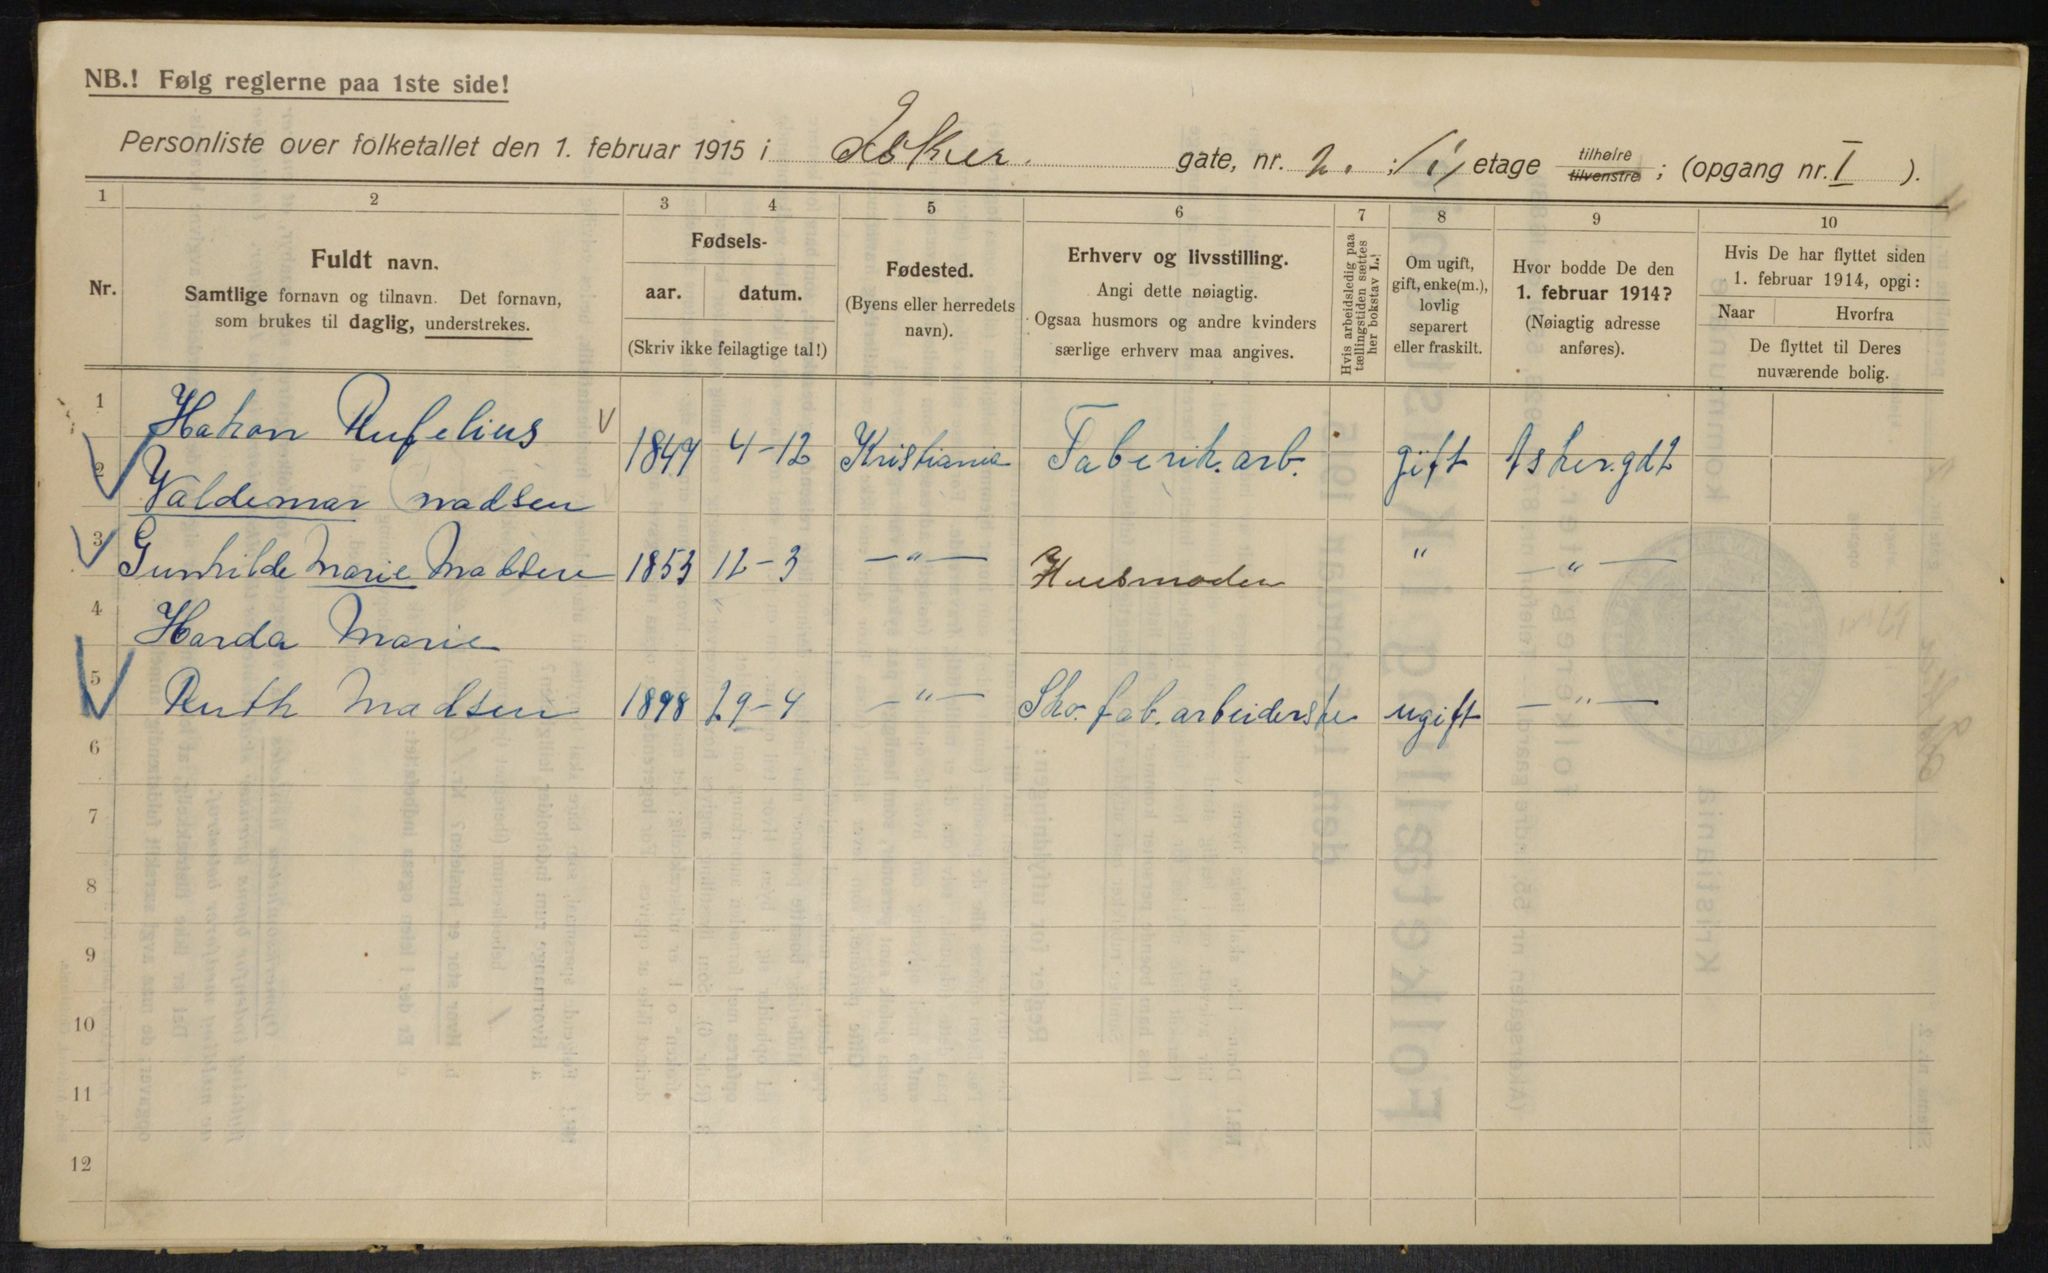 NB.! Følg reglerne paa 1ste side!
Personliste over folketallet den 1. februar 1915 i Asker gate, nr. 2. ; 1 etage tilhøire tilvenstre ; (opgang nr. I ).
1 2 3 4 5 6 7 8 9 10
Nr.
Fuldt navn.
Samtlige fornavn og tilnavn. Det fornavn,
som brukes til daglig, understrekes.
Fødsels-
aar. datum.
(Skriv ikke feilagtige tal!)
Fødested.
(Byens eller herredets
navn).
Erhverv og livsstilling.
Angi dette nøiagtig.
Ogsaa husmors og andre kvinders
særlige erhverv maa angives.
Hvis arbeidsledig paa
tællingstiden sættes
her bokstav L.!
Om ugift,
gift, enke(m.),
lovlig
separert
eller fraskilt.
Hvor bodde De den
1. februar 1914?
(Nøiagtig adresse
anføres).
Hvis De har flyttet siden
1. februar 1914, opgi:
Naar Hvorfra
De flyttet til Deres
nuværende bolig.
1 Hakon Rufelius
2 Valdemar Madsen 1847 4-12 Kristiania Faberik. arb. gift Askergdt 2
3 Gunhilde Marie Madsen 1853 12-3 —"— Husmoder " —"—
4 Harda Marie
5 Ruth Madsen 1898 29-4 —"— Sko. fab. arbeiderske ugift —"—
6
7
8
9
10
11
12